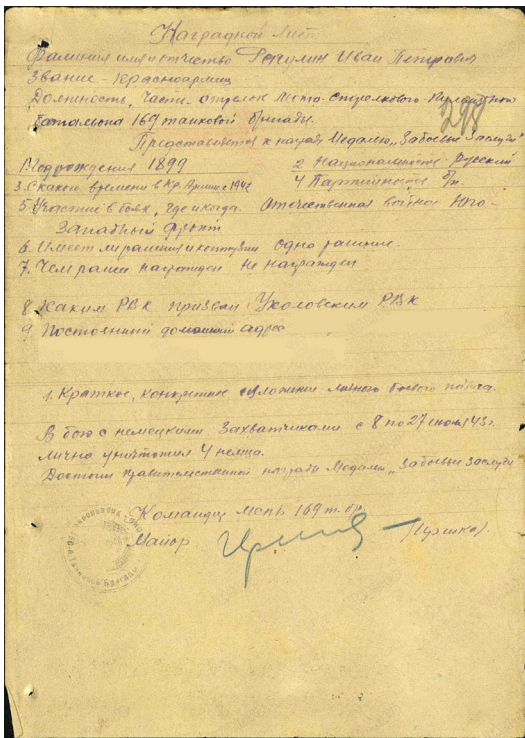 Наградной Лист
Фамилия имя и отчество Иван Петрович
Звание - красноармеец
Должность, часть. стрелок Мото-стрелкового-пулеметного
батальона 169 танковой бригады.
298
Представляется к награде Медалью „За боевые заслуги"
1. Год рождения 1899 2. Национальность Русский
3. С какого времени в Кр. Армии с 1942 4 Партийность б/п.
5 Участие в боях, где и когда. Отечественная война Юго-
Западный фронт
6. Имеет ли ранения и контузии одно ранение.
7. Чем ранее награжден не награжден
8 Каким РВК призван Уколовским РВК
9. Постоянный домашний адрес
1. Краткое, конкретное изложение личного боевого подвига.
В бою с немецкими захватчиками с 8 по 27 43 г.
лично уничтожил 4 немца.
Достоин правительственной награды Медали „За боевые заслуги"
Командир мспб 169 т. бр.
Майор
Танковой Бригады